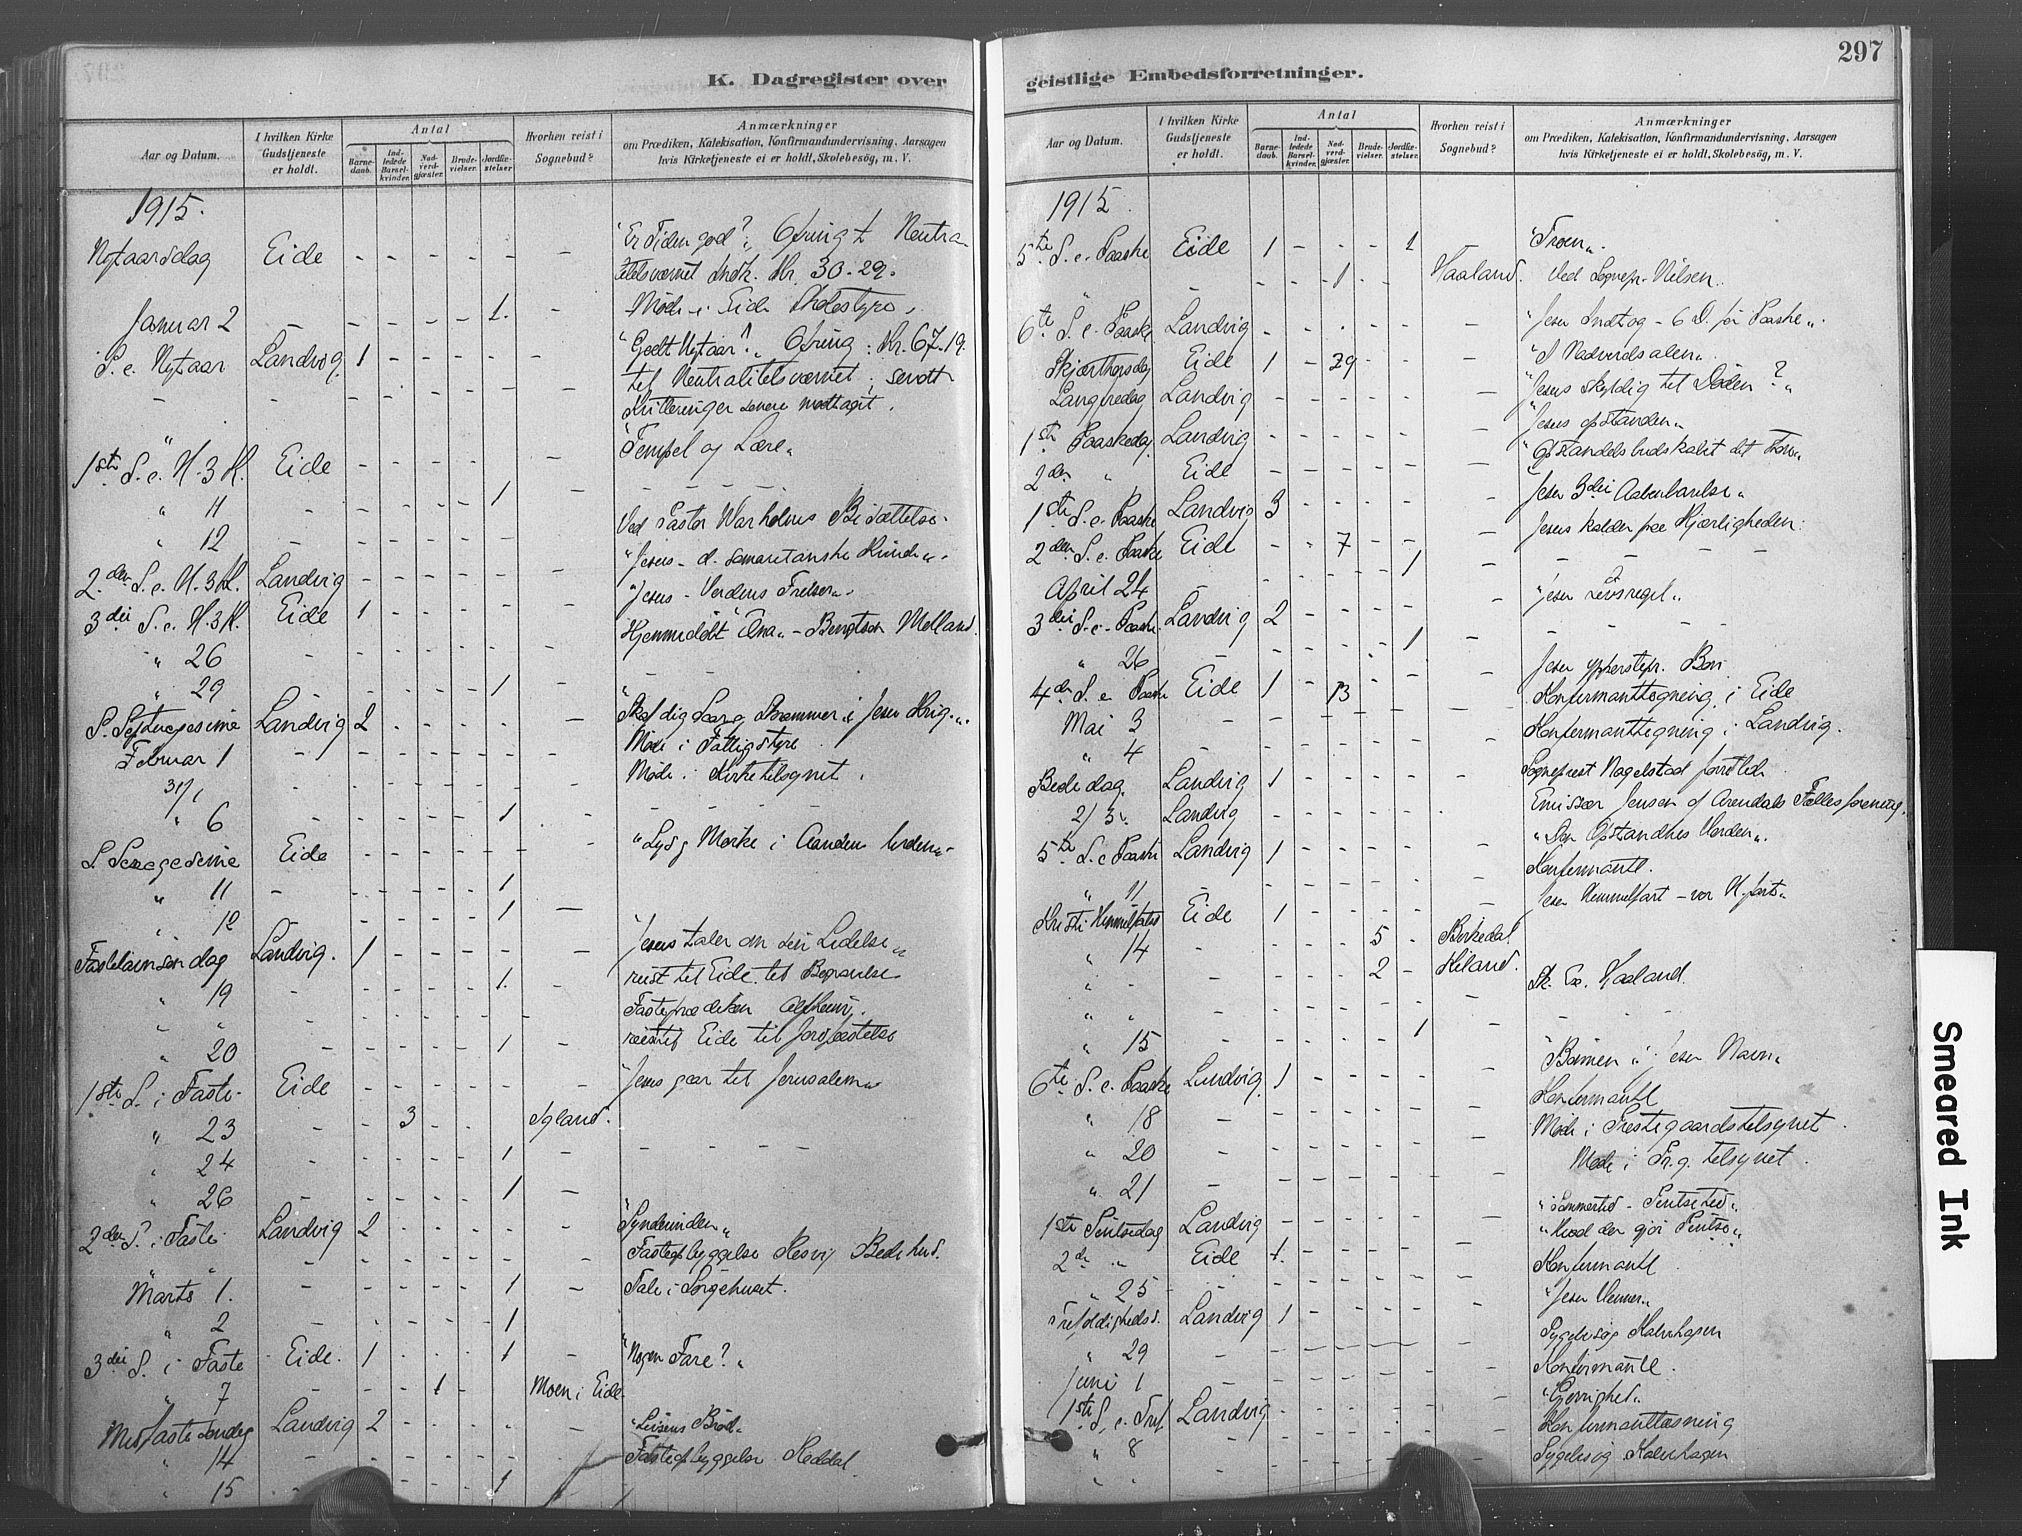 297
K. Dagregister over
geistlige Embedsforretninger.
Aar og Datum.
I hvilken Kirke Gudstjeneste er holdt.
Antal
Barnedaab.
Indledede Barselkvinder.
Nadverdgjæster.
Brudevielser.
Jordfæstelser
Hvorhen reist i Sognebud?
Anmærkninger
om Prædiken, Katekisation, Konfirmandundervisning. Aarsagen
hvis Kirketjeneste ei er holdt, Skolebesög, m. V.
1915.
Nytaarsdag Eide - - - - - - "Er Tiden god?" Ofring t. Neutra-
litetsværnet Indk. Kr. 30.29.
Januar 2 - - - - - 1. - Møde i Eide Skolestyre.
S. e. Nytaar Landvig 1 - - - - - "Godt Nytaar!" Ofring: Kr. 67.19
- - - - - - - - til Neutralitetsværnet;
Kvitteringer senere modtaget.
1ste S. e. H. 3 K. Eide - - - - - - "Tempel og Lære"
" 11 - - - - - 1 - - - - -
" 12 - - - - - - Ved Pastor Warholms Bisættelse.
2den S. e. H. 3 K. Landvig - - - - - - "Jesus - d. samaritanske Kvinde".
3die S. e. H. 3 K. Eide 1 - - - - - "Jesus - Verdens Frelser".
" 26 - - - - - - Hjemmedøbt "Ana" - Bengtson Molland.
" 29 - - - - - 1 -
S. Septuagesima Landvig 2 - - - - -
Februar 1 - - - - - - Møde i Fattigstyre
31/1 - - - - - - Møde i Kirketilsynet.
" 6 - - - - - 1 - - - - -
S Sexagesima Eide - - - - - - "Lys og Mørke i Aandens Verden".
" 11 - - - - - 1
" 12 - - - - - 1 -
Fastelavnsøndag Landvig. 1 - - - - - "Jesus taler om sin Lidelse"
" 19 - - - - - 1. - reist til Eide til Begravelse.
" " - - - - - - Fasteprædiken
" 20 - - - - - 1 - reist til Eide til Jordfæstelse
1ste S. i Faste. Eide - - - - - - "Jesus gaar til Jerusalem"
" 23 - - - 3 - - Igland.
" 24 - - - - - 1 - - - - -
" 26 - - - - - 1 -
2den S. i Faste Landvig 2 - - - - - "Synderinden"
" " - - - - - - Fasteopbyggelse Resvig Bedehus.
Marts 1. - - - - - 1 - Tale i Sørgehuset.
" 2 - - - - - 1
3die S. i Faste Eide. 1 - - - 1 - "Nogen Fare?"
" 7 - - - 1 - - Moen i Eide
Midfaste Søndag Landvig 2 - - - - - "Livsens Brød"
" 14 - - - - - - Fasteopbyggelse Roddal
" 15 - - - - - 1
Aar og Datum.
I hvilken Kirke Gudstjeneste er holdt.
Antal
Barnedaab.
Indledede Barselkvinder.
Nadverdgjæster.
Brudevielser.
Jordfæstelser.
Hvorhen reist i Sognebud?
Anmærkninger
om Prædiken, Katekisation, Konfirmandundervisning. Aarsagen
hvis Kirketjeneste ei er holdt, Skolebesög, m. V.
1915.
5te S. i Faaste Eide 1 - - - 1 "Troen".
" - - - 1 - - Haaland. Ved Sognepr. Nilsen.
6te S. i Faaste Landvig - - - - - - "Jesu Indtog - 6 D. før Paaske".
Skjærthorsdag Eide 1 - 29 - - - "I Nadverdsalen".
Langfredag Landvig - - - - - - "Jesus skyldig til Døden?"
1ste Paaskedag Landvig - - - - - - "Jesus opstanden"
2den " Eide - - - - - -
1ste S. e. Paaske Landvig 3 - - - - - "Jesu 3die Aabenbarelse"
2den S. e. Paaske Eide - - 7 - - - Jesus kalder paa Kjærligheden:
April 24 - - - - - 1 - - - - -
3die S. e. Paaske Landvig 2 - - - - - "Jesu Livsregel"
" 26 - - - - - 1 - - - - -
4de S. e. Paaske Eide 1 - 13 - - - Jesu ypperstepr. Bøn
Mai 3 - - - - - - Konfirmanttegning i Eide
" 4 - - - - - - Konfirmanttegning i Landvig.
Bededag. Landvig 1 - - - - - Sogneprest Nagelstad forretted
2/3. Landvig Emissær Jensen af Arendals Fællesforening.
5te S. e Paaske Landvig 1 - - - - -
" 11 - - - - - - Konfirmantl.
Kristi Himmelfartsd Eide 1 - - - - - Jesu Himmelfart - vor H.fart"
" 14 - - - 5 - Birkedal
" - - - - 2 - Heland. Sk. Ex. Haaland.
" " - - - - - -
" 15 - - - - - 1 - - - -
6te S. e. Paaske Landvig 1 - - - - - "Bønnen i Jesu Navn"
" 18 - - - - - - Konfirmantl
" 20 - - - - - - Møde i Prestegaardstilsynet.
" 21 - - - - - - Møde i Pr.g. tilsynet.
1ste Pintsedag Landvig - - - - - - "Sommertid - Pintsetid"
2den " Eide 1. - - - - - "Hvad der gjør Pintse"
" 25 - - - - - - Konfirmantl.
Trefoldighedss. Landvig 1 - - - - - "Jesu Venner"
" 29 - - - - - - Sygebesøg Kalvehagen
Juni 1 - - - - - - Konfirmantl.
1ste S. e. Tref. Landvig - - - - - - "Gjerrighed"
" 8 - - - - - - Konfirmantlæsning
" " - - - - - - Sygebesøg Kalvehagen
Smeared Ink